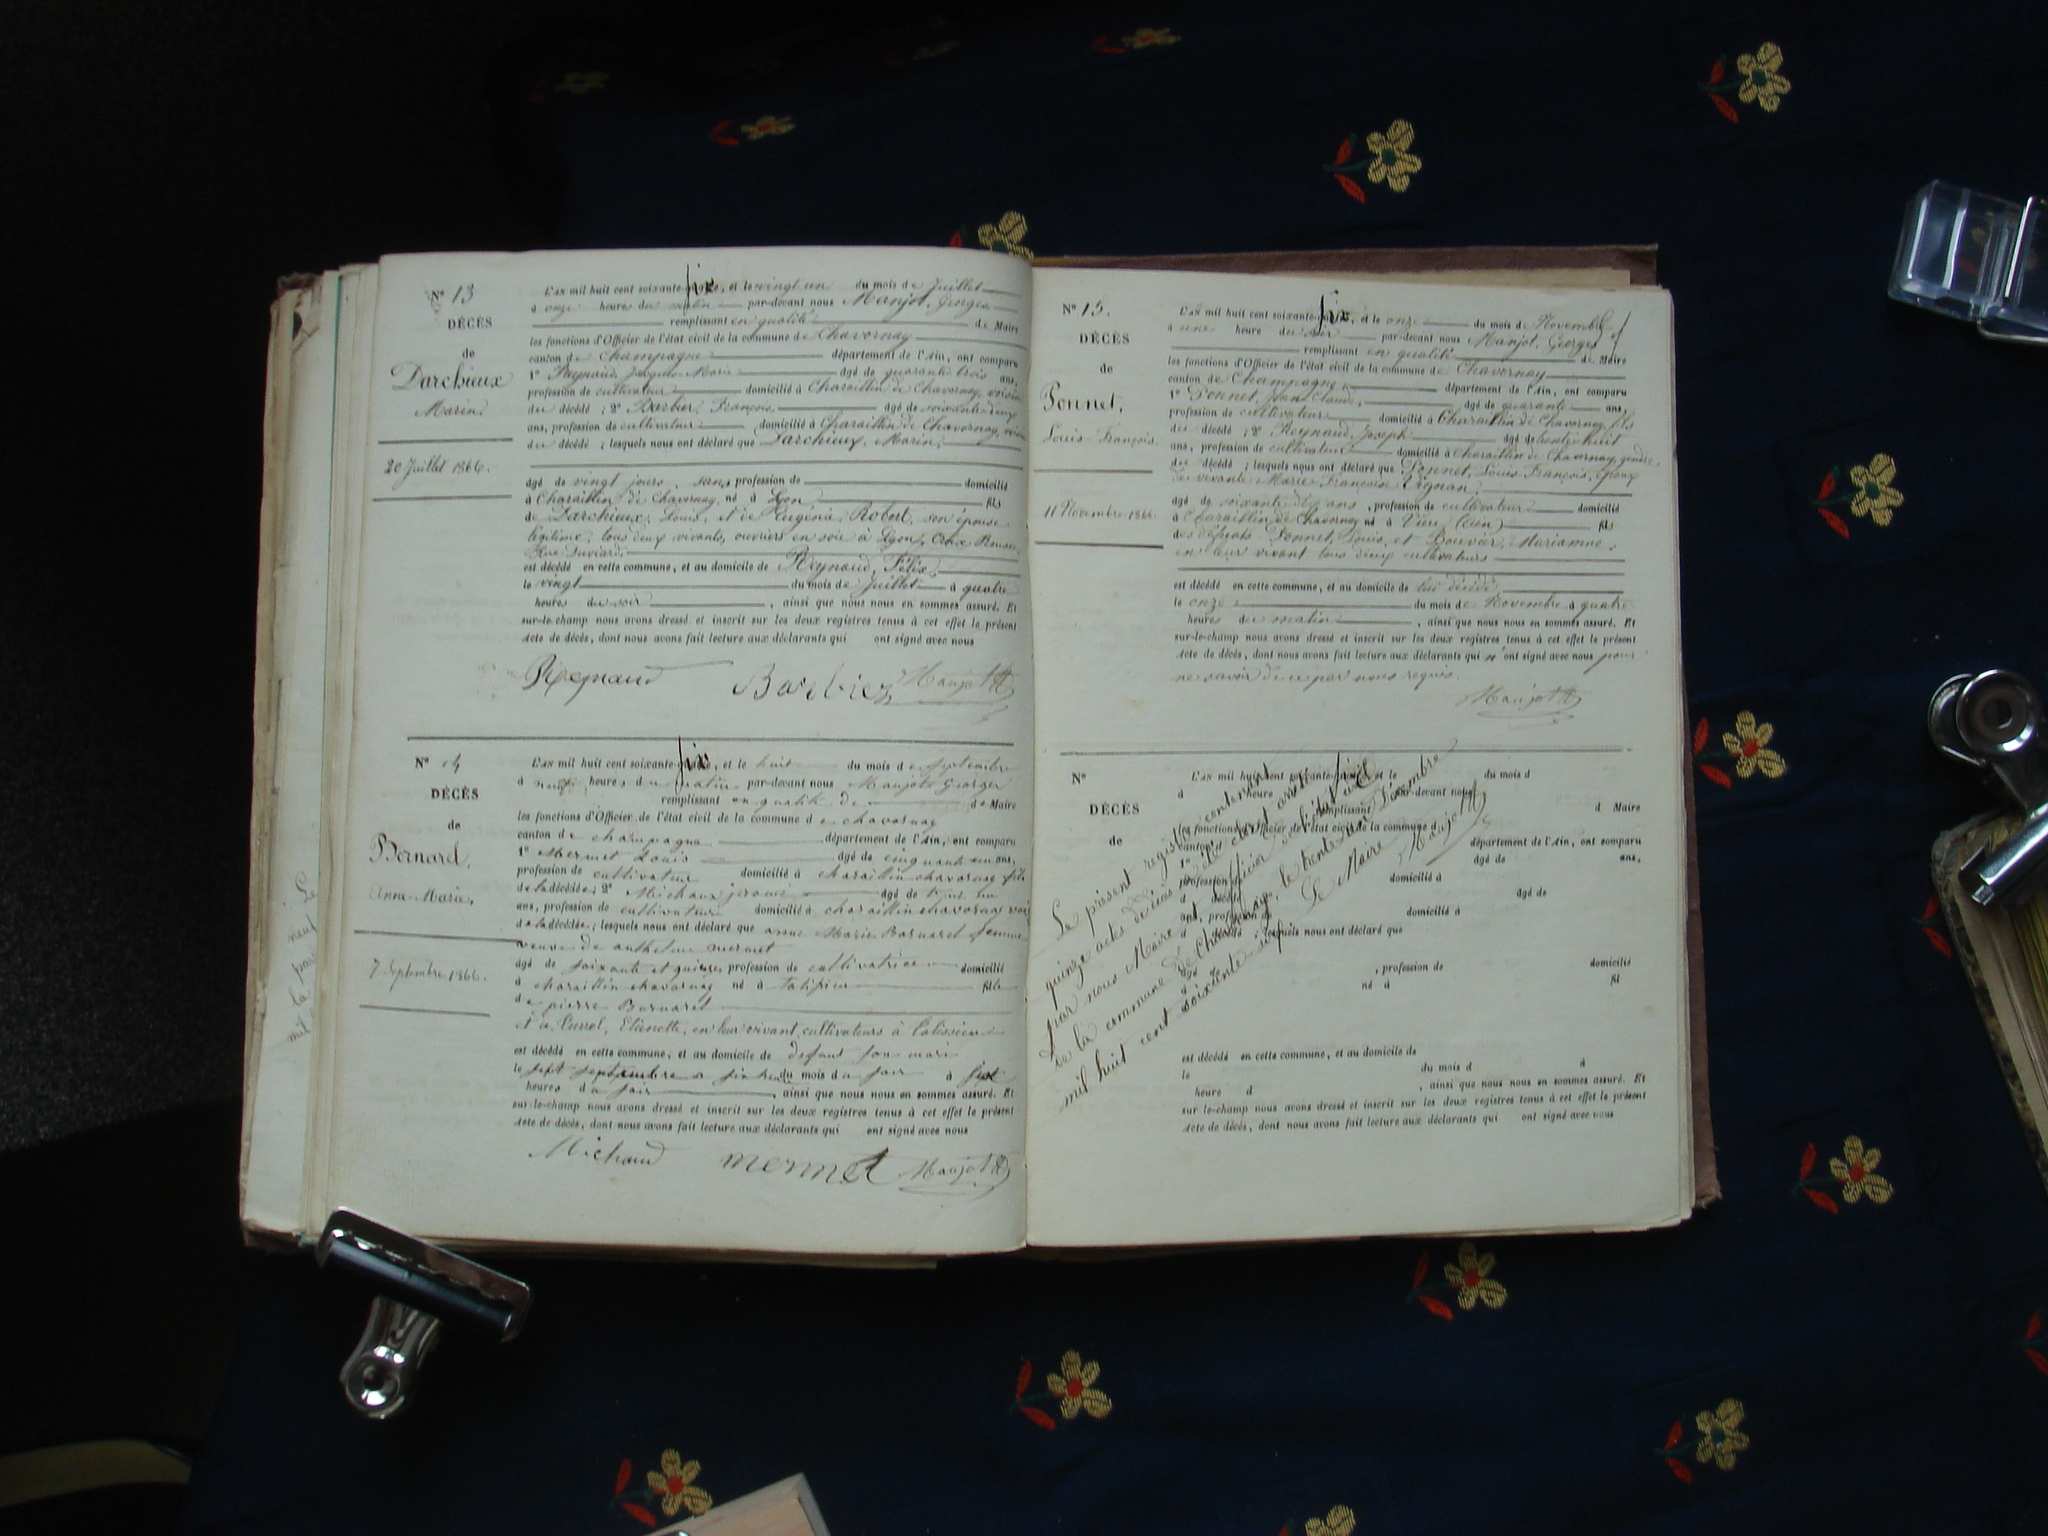 N° 13
DÉCÈS
de
Darchieux
Marin
20 Juillet 1866.
L'an mil huit cent soixante-six, et le vingt un du mois de Juillet
à onze heures du matin par-devant nous Manjot, Georges
remplissant en qualité de Maire
les fonctions d'Officier de l'état civil de la commune de Chavornay
canton de Champagne département de l'Ain, ont comparu
1° Reynaud, Jacques Marie âgé de quarante trois ans,
profession de cultivateur domicilié à Charaillin de Chavornay, voisin
du décédé ; 2° Barbier, François âgé de soixante deux
ans, profession de cultivateur domicilié à Charaillin de Chavornay, voisin
du décédé ; lesquels nous ont déclaré que Darchieux, Marin,
âgé de vingt jours, sans profession de domicilié
à Charaillin de Chavornay né à Lyon fils
de Darchieux, Louis, et de Eugénie Robert, son épouse
légitime, tous deux vivants, ouvriers en soie à Lyon, Croix Rousse
Rue
est décédé en cette commune, et au domicile de Reynaud, Félix,
le vingt du mois de Juillet à quatre
heures du soir, ainsi que nous nous en sommes assuré. Et
sur-le-champ nous avons dressé et inscrit sur les deux registres tenus à cet effet le présent
Acte de décès, dont nous avons fait lecture aux déclarants qui ont signé avec nous
Reynaud Barbier Manjot
N° 14
DÉCÈS
de
Bernard,
Anne-Marie,
7 Septembre 1866.
L'an mil huit cent soixante-six, et le huit du mois de septembre
à neuf heures du matin par-devant nous Manjot Georges
remplissant en qualité de de Maire
les fonctions d'Officier de l'état civil de la commune de chavornay
canton de champagne département de l'Ain, ont comparu
1° Mermet Louis âgé de cinquante un ans,
profession de cultivateur domicilié à charaillin chavornay fils
de la décédée ; 2° Michaux âgé de
ans, profession de cultivateur domicilié à charaillin chavornay
de la décédée ; lesquels nous ont déclaré que anne Marie Barnaret femme
veuve de anthelme mermet
âgé de soixante et quinze, profession de cultivatrice domicilié
à charaillin chavornay né à talissieu fille
de pierre Barnaret
et de Etienette, en leur vivant, cultivateurs à Talissieu
est décédé en cette commune, et au domicile de defunt son mari
le sept septembre du mois du soir à sept
heures du soir, ainsi que nous nous en sommes assuré. Et
sur-le-champ nous avons dressé et inscrit sur les deux registres tenus à cet effet le présent
Acte de décès, dont nous avons fait lecture aux déclarants qui ont signé avec nous
Michaud mermet Manjot
N° 15.
DÉCÈS
de
Ponnet,
Louis François
11 Novembre 1866.
L'an mil huit cent soixante-six, et le onze du mois de Novembre
à une heure du soir par-devant nous Manjot, Georges
remplissant en qualité de Maire
les fonctions d'Officier de l'état civil de la commune de Chavornay
canton de Champagne département de l'Ain, ont comparu
1° Ponnet, Jean Claude, âgé de quarante ans,
profession de cultivateur domicilié à Charaillin de Chavornay, fils
du décédé ; 2° Reynaud, Joseph âgé de trente huit
ans, profession de cultivateur domicilié à Charaillin de Chavornay, gendre
du décédé ; lesquels nous ont déclaré que Ponnet, Louis François, époux
de vivante Marie Françoise Vignan,
âgé de soixante dix ans, profession de cultivateur domicilié
à Charaillin de Chavornay né à Vieu (Ain) fils
des défunts Ponnet, Louis, et Bouvier, Marianne,
en leur vivant tous deux cultivateurs
est décédé en cette commune, et au domicile de lui décédé
le onze du mois de Novembre à quatre
heures du matin, ainsi que nous nous en sommes assuré. Et
sur-le-champ nous avons dressé et inscrit sur les deux registres tenus à cet effet le présent
Acte de décès, dont nous avons fait lecture aux déclarants qui n'ont signé avec nous pour
ne savoir de ce par nous requis.
Manjot
N°
DÉCÈS
de
L'an mil huit cent soixante-six, et le du mois d
à heure par-devant nous
remplissant d Maire
les fonctions d'Officier de l'état civil de la commune d
canton département de l'Ain, ont comparu
1° âgé de ans,
profession domicilié à
d décédé âgé de
ans, profession d domicilié à
d décédé ; lesquels nous ont déclaré que
âgé de , profession de domicilié
à né à fil
d
est décédé en cette commune, et au domicile de
le du mois d à
heure d , ainsi que nous nous en sommes assuré. Et
sur-le-champ nous avons dressé et inscrit sur les deux registres tenus à cet effet le présent
Acte de décès, dont nous avons fait lecture aux déclarants qui ont signé avec nous
Le présent registre contenant
quinze actes de décès a été clos et arrêté
par nous Maire et officier de l'état civil
de la commune de Chavornay, le trente un Décembre
mil huit cent soixante-six. Le Maire Manjot